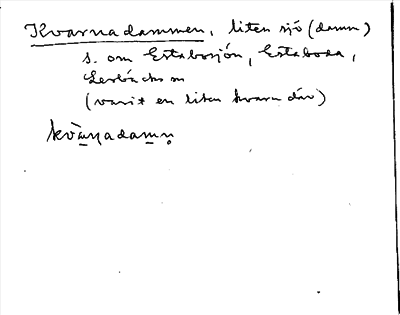 Kvarnadammen, liten sjö (damm)
s. om Estabosjön, Estaboda,
sn
(varit en liten kvarn där)
kvà̱ṇadam̱ṇ